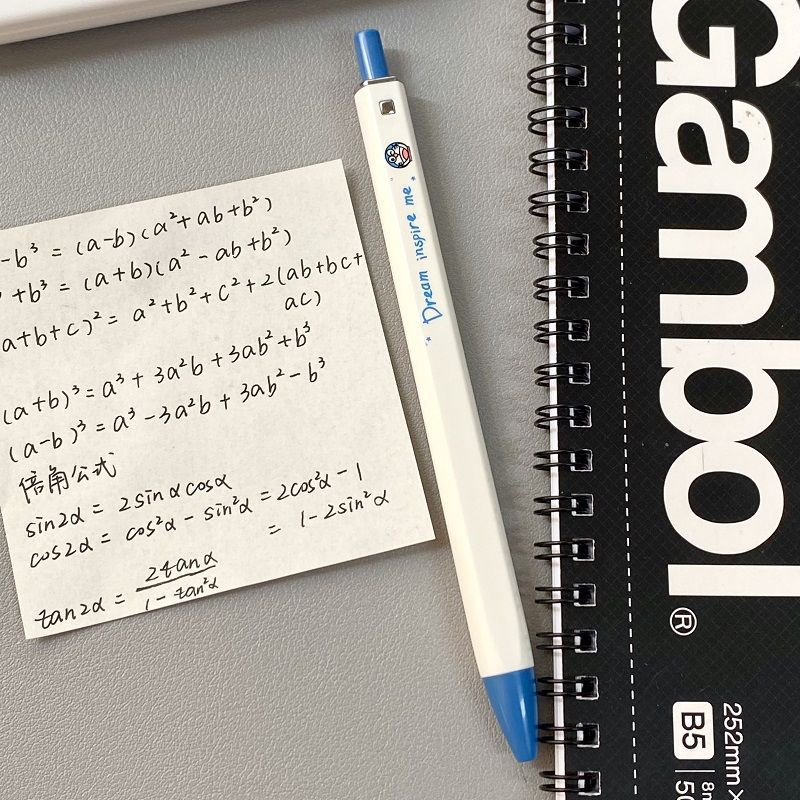 -b³ = (a-b)(a²+ab+b²)
+b³ = (a+b)(a²-ab+b²)
a+b+c)² = a²+b²+c²+2(ab+bc+
ac)
(a+b)³=a³+3a²b+3ab²+b³
(a-b)³=a³-3a²b+3ab²-b³
倍角公式
sin2α = 2sinαcosα
cos2α = cos²α - sin²α = 2cos²α - 1
= 1-2sin²α
tan2α = 2tanα / 1-tan²α
Dream inspire me
Gambol®
B5
252mm ×